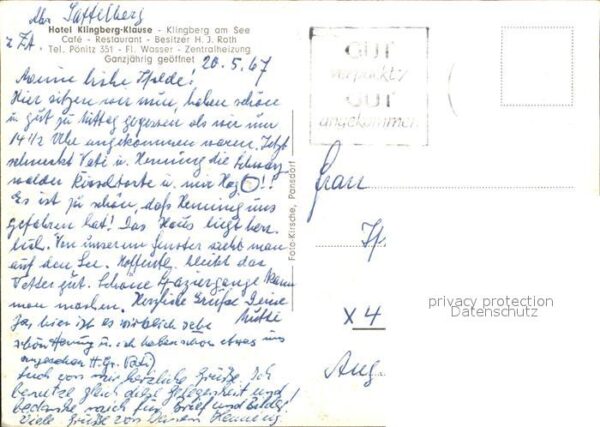 Abs. Sattelberg
z. Zt.
Hotel Klingberg-Klause - Klingberg am See
Café - Restaurant - Besitzer H. J. Roth
Tel. Pönitz 351 - Fl. Wasser - Zentralheizung
Ganzjährig geöffnet
20.5.67
Meine liebe Hilde!
Hier sitzen wir nun, haben schön
u. gut zu Mittag gegessen als wir um
14½ Uhr angekommen waren. Jetzt
schmeckt Vati u. Henning die Schwarz
wälder Kirschtorte u. mir
Es ist zu schön, daß Henning uns
gefahren hat! Das Haus liegt herr
lich. Von unserem Fenster sieht man
auf den See. Hoffentl. bleibt das
Wetter gut. Schöne Spaziergänge kann
man machen. Herzliche Grüße Deine
Mutti
Ja, hier ist es wirklich sehr
schön u. ich haben schon etwas uns
angesehen H. Gr. Vati)
Auch von mir herzliche Grüße. Ich
benutze gleich diese Gelegenheit und
bedanke mich für Brief und Bilder!
Viele Grüße von Deinem Henning
GUT
verpackt?
GUT
angekommen
Foto-Kirsche, Pansdorf
Frau
X 4
privacy protection
Datenschutz